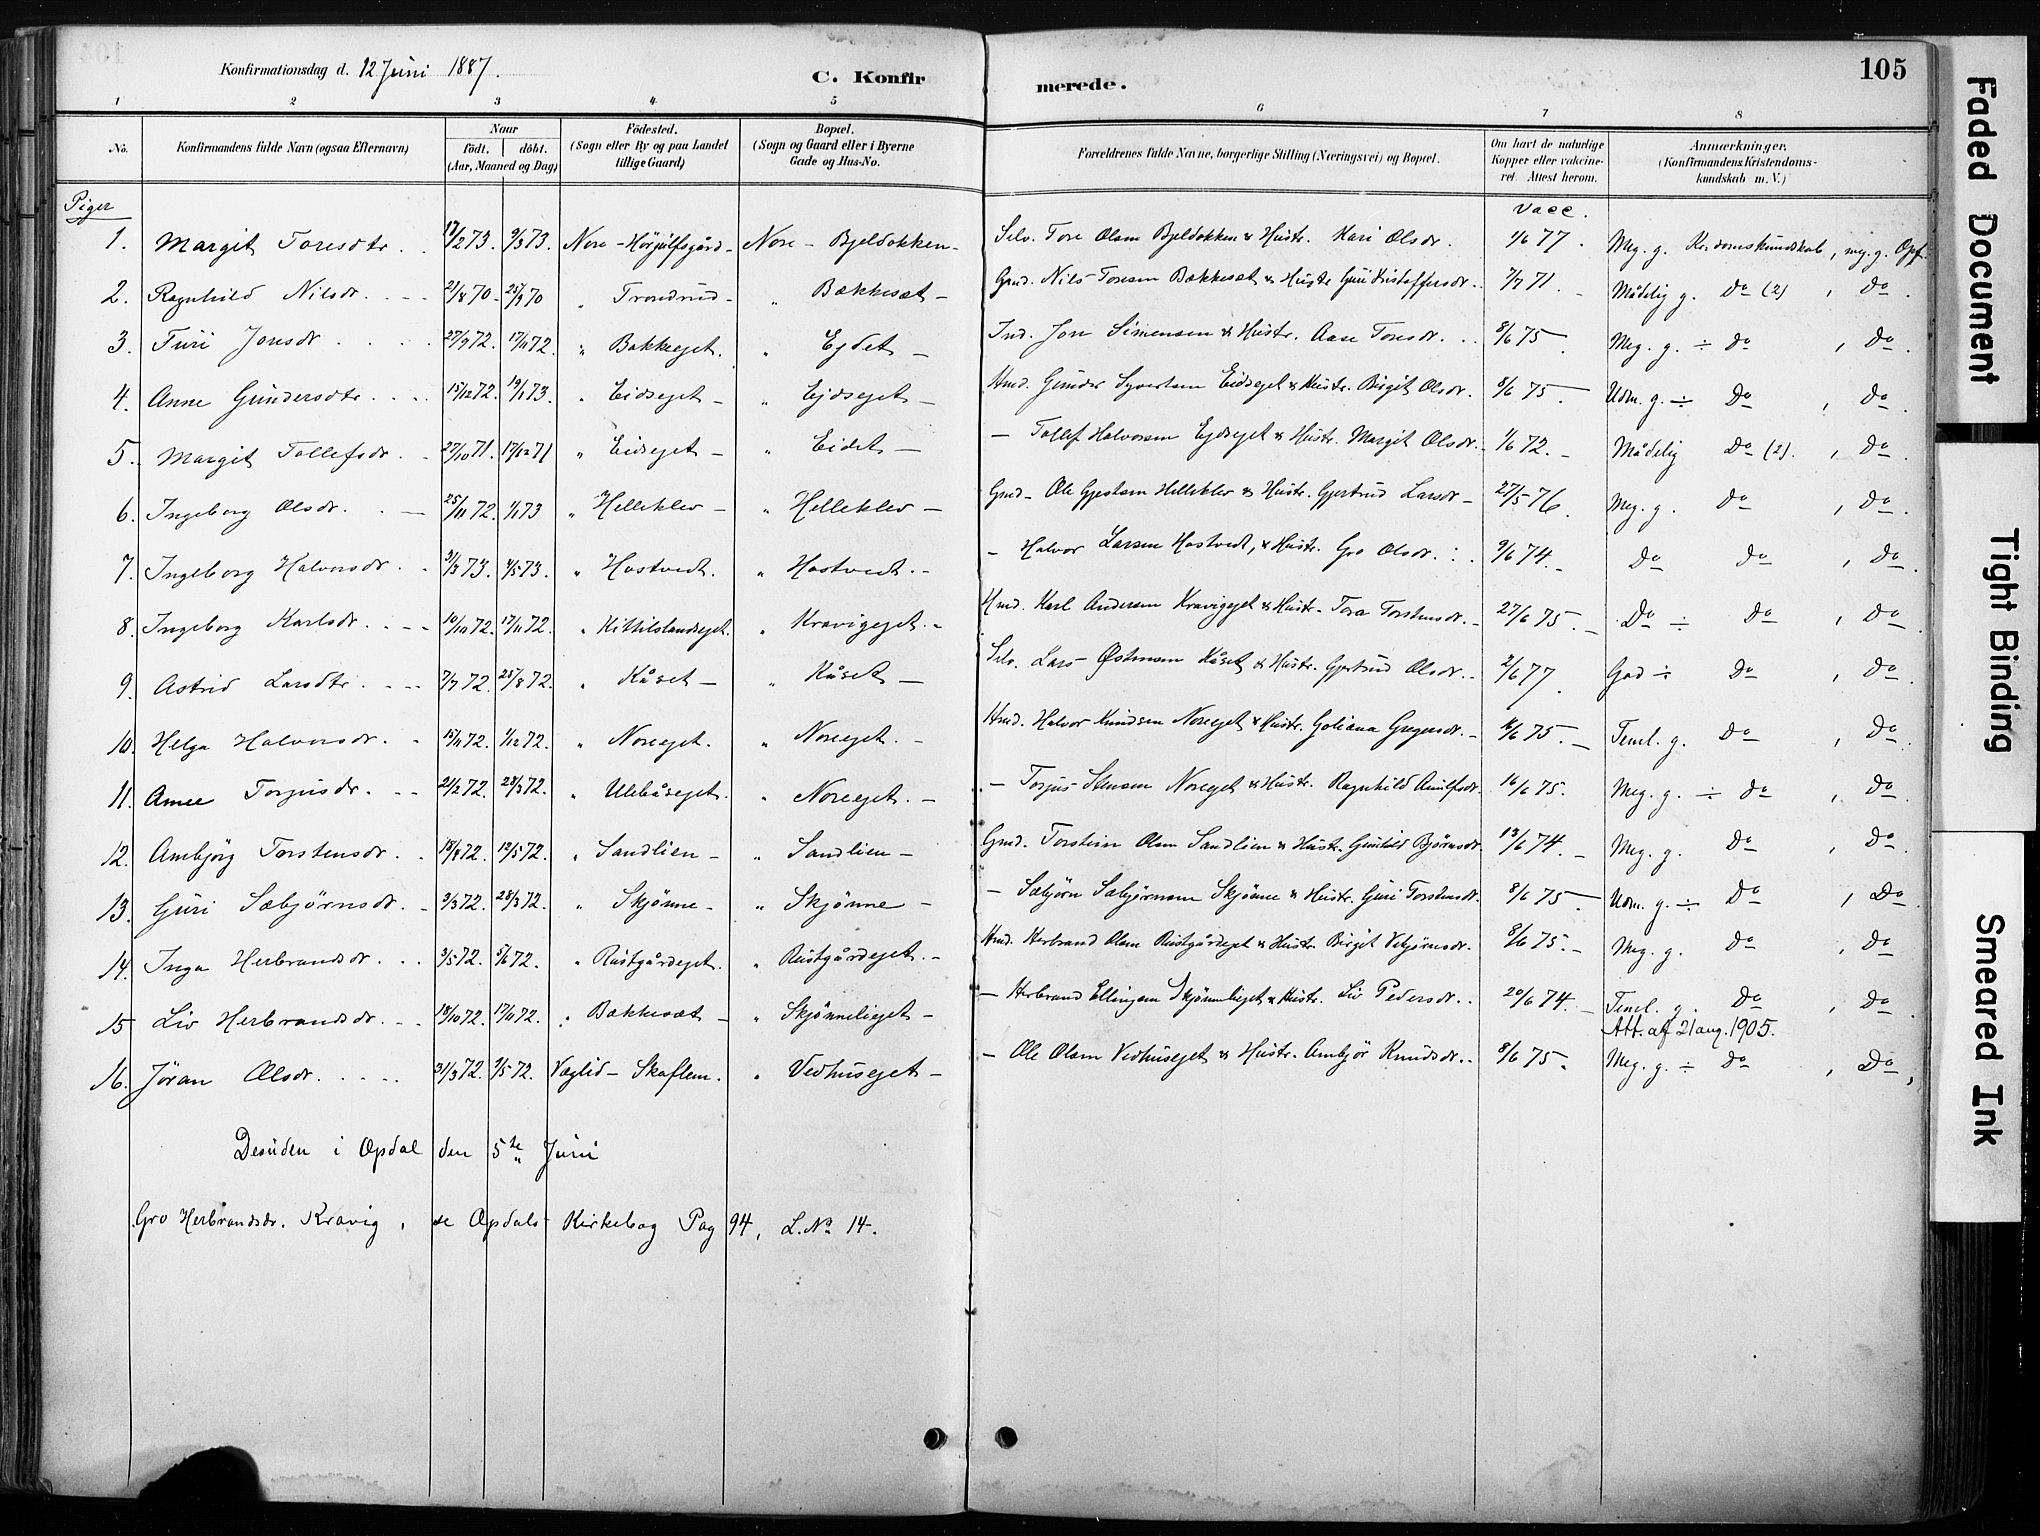 105
Konfirmationsdag d. 12 Juni 1887. C. Konfirmerede.
1 2 3 4 5 6 7 8
No. Konfirmandens fulde Navn (ogsaa Efternavn) Naar födt. döbt. (Aar, Maaned og Dag) Födested. (Sogn eller By og paa Landet tillige Gaard) Bopæl. (Sogn og Gaard eller i Byerne Gade og Hus-No. Forældrenes fulde Navne, borgerlige Stilling (Næringsvei) og Bopæl. Om havt de naturlige Kopper eller vakcineret. Attest herom. Anmærkninger. (Konfirmandens Kristendomskundskab m. V.)
Piger Vacc.
1. Margit Toresdtr. 73. 9/3 73. Nore - Hörjulfsgård - Nore - Bjeldokken - Selv. Tore Olsen Bjeldokken & Hustr. Kari Olsdr. 1/6 77. Meg. g. Kr.domskundskab, meg. g. Opf.
2. Ragnhild Nilsdr. 21/8 70 - 25/9 70 " Trondrud - " Bækkesæt - Gmd. Nils Toresen Bækkesæt & Hustr. Guri Kristoffersdr. 7/7 71. Mådelig g. Do (2), Do.
3. Turi Jonsdr. 27/9 72. 17/11 72. " Bakkeejet. " Ejdet - Ind. Jon Simensen & Hustr. Aase Toresdr. 8/6 75. Meg. g. ÷ Do, Do.
4. Anne Gundersdtr. 15/12 72. 19/1 73. " Eidsejet - " Ejdsejet - Hmd. Gunder Syvertsen Eidsejet & Hustr. Birgit Olsdr. 8/6 75. Udm. g. ÷ Do, Do.
5. Margit Tollefsdr. 27/10 71. 17/12 71 " Eidsejet - " Eidet - - Tollef Halvorsen Ejdsejet & Hustr. Margit Olsdr. 1/6 72. Mådelig Do (2), Do.
6. Ingeborg Olsdr. 25/11 72. 1/1 73 " Helleklev - " Helleklev - Gmd - Ole Gjestsen Helleklev & Hustr. Gjertrud Larsdr - 27/5 76. Meg. g. Do, Do.
7. Ingeborg Halvorsdr. 3/3 73. 4/5 73. " Hostvedt. " Hostvedt. - - Halvor Larsen Hostvedt, & Hustr. Gro Olsdr. 9/6 74. Do Do, Do.
8. Ingeborg Karlsdr. 10/10 72. 17/11 72. " Kittilslandsejet. " Kravigejet. - Hmd. Karl Andersen Kravigejet & Hustr. Tora Torstensdr. - 27/6 75. Do ÷ Do, Do.
9. Astrid Larsdtr. 7/7 72. 25/8 72. " Kåset - " Kåset - Selv. Lars Østensen Kåset & Hustr. Gjertrud Olsdr. 2/6 77. God ÷ Do, Do.
10. Helga Halvorsdr. 15/11 72. 1/12 72. " Noreejet. " Noreejet. - Hmd. Halvor Knudsen Noreejet & Hustr. Goliana Gregersdr. 75. Temel. g. Do, Do.
11. Anne Torjusdr. 21/2 72. 28/3 72. " Ulebåsejet. " Noreejet. - - Torjus Stensen Noreejet & Hustr. Ragnhild 16/6 75. Meg. g. ÷ Do, Do.
12. Ambjörg Torstensdr. 18/4 72. 12/5 72. " Sandlien - " Sandlien - Gmd. Torstein Olsen Sandlien & Hustr. Gunhild Bjørnsdr. 13/6 74. Meg. g. Do, Do.
13. Guri Sæbjørnsdr. 3/3 72. 28/3 72. " Skjønne - " Skjønne - - Sæbjørn Sæbjørnsen Skjønne & Hustr. Guri Torstensdr. 8/6 75 Udm. g. ÷ Do, Do.
14. Inga Herbrandsdr. 3/5 72. 5/6 72. " Rustgårdejet. " Rustgårdejet. - Hmd. Herbrand Olsen Rustgårdejet & Hustr. Birgit Vebjørnsdr. 8/6 75. Meg. g. Do, Do.
15 Liv Herbrandsdr. 18/10 72. 17/11 72. " Bækkesæt - " Skjønneliejet - - Herbrand Ellingsen Skjønneliejet & Hustr. Liv Pedersdr. 20/6 74. Temel. g. Do, Do.
Att. af 21 aug. 1905.
16. Jöran Olsdr. 31/3 72. 9/5 72. Væglid - Skaflem. " Vedhusejet - - Ole Olsen Vedhusejet & Hustr. Ambjør Knudsdr. 8/6 75. Meg. g. ÷ Do, Do,
Desuden i Opdal den 5te Juni
Gro Herbrandsdr. Kravig, se Opdals Kirkebog Pag 94, L. No 14.
Faded Document
Tight Binding
Smeared Ink